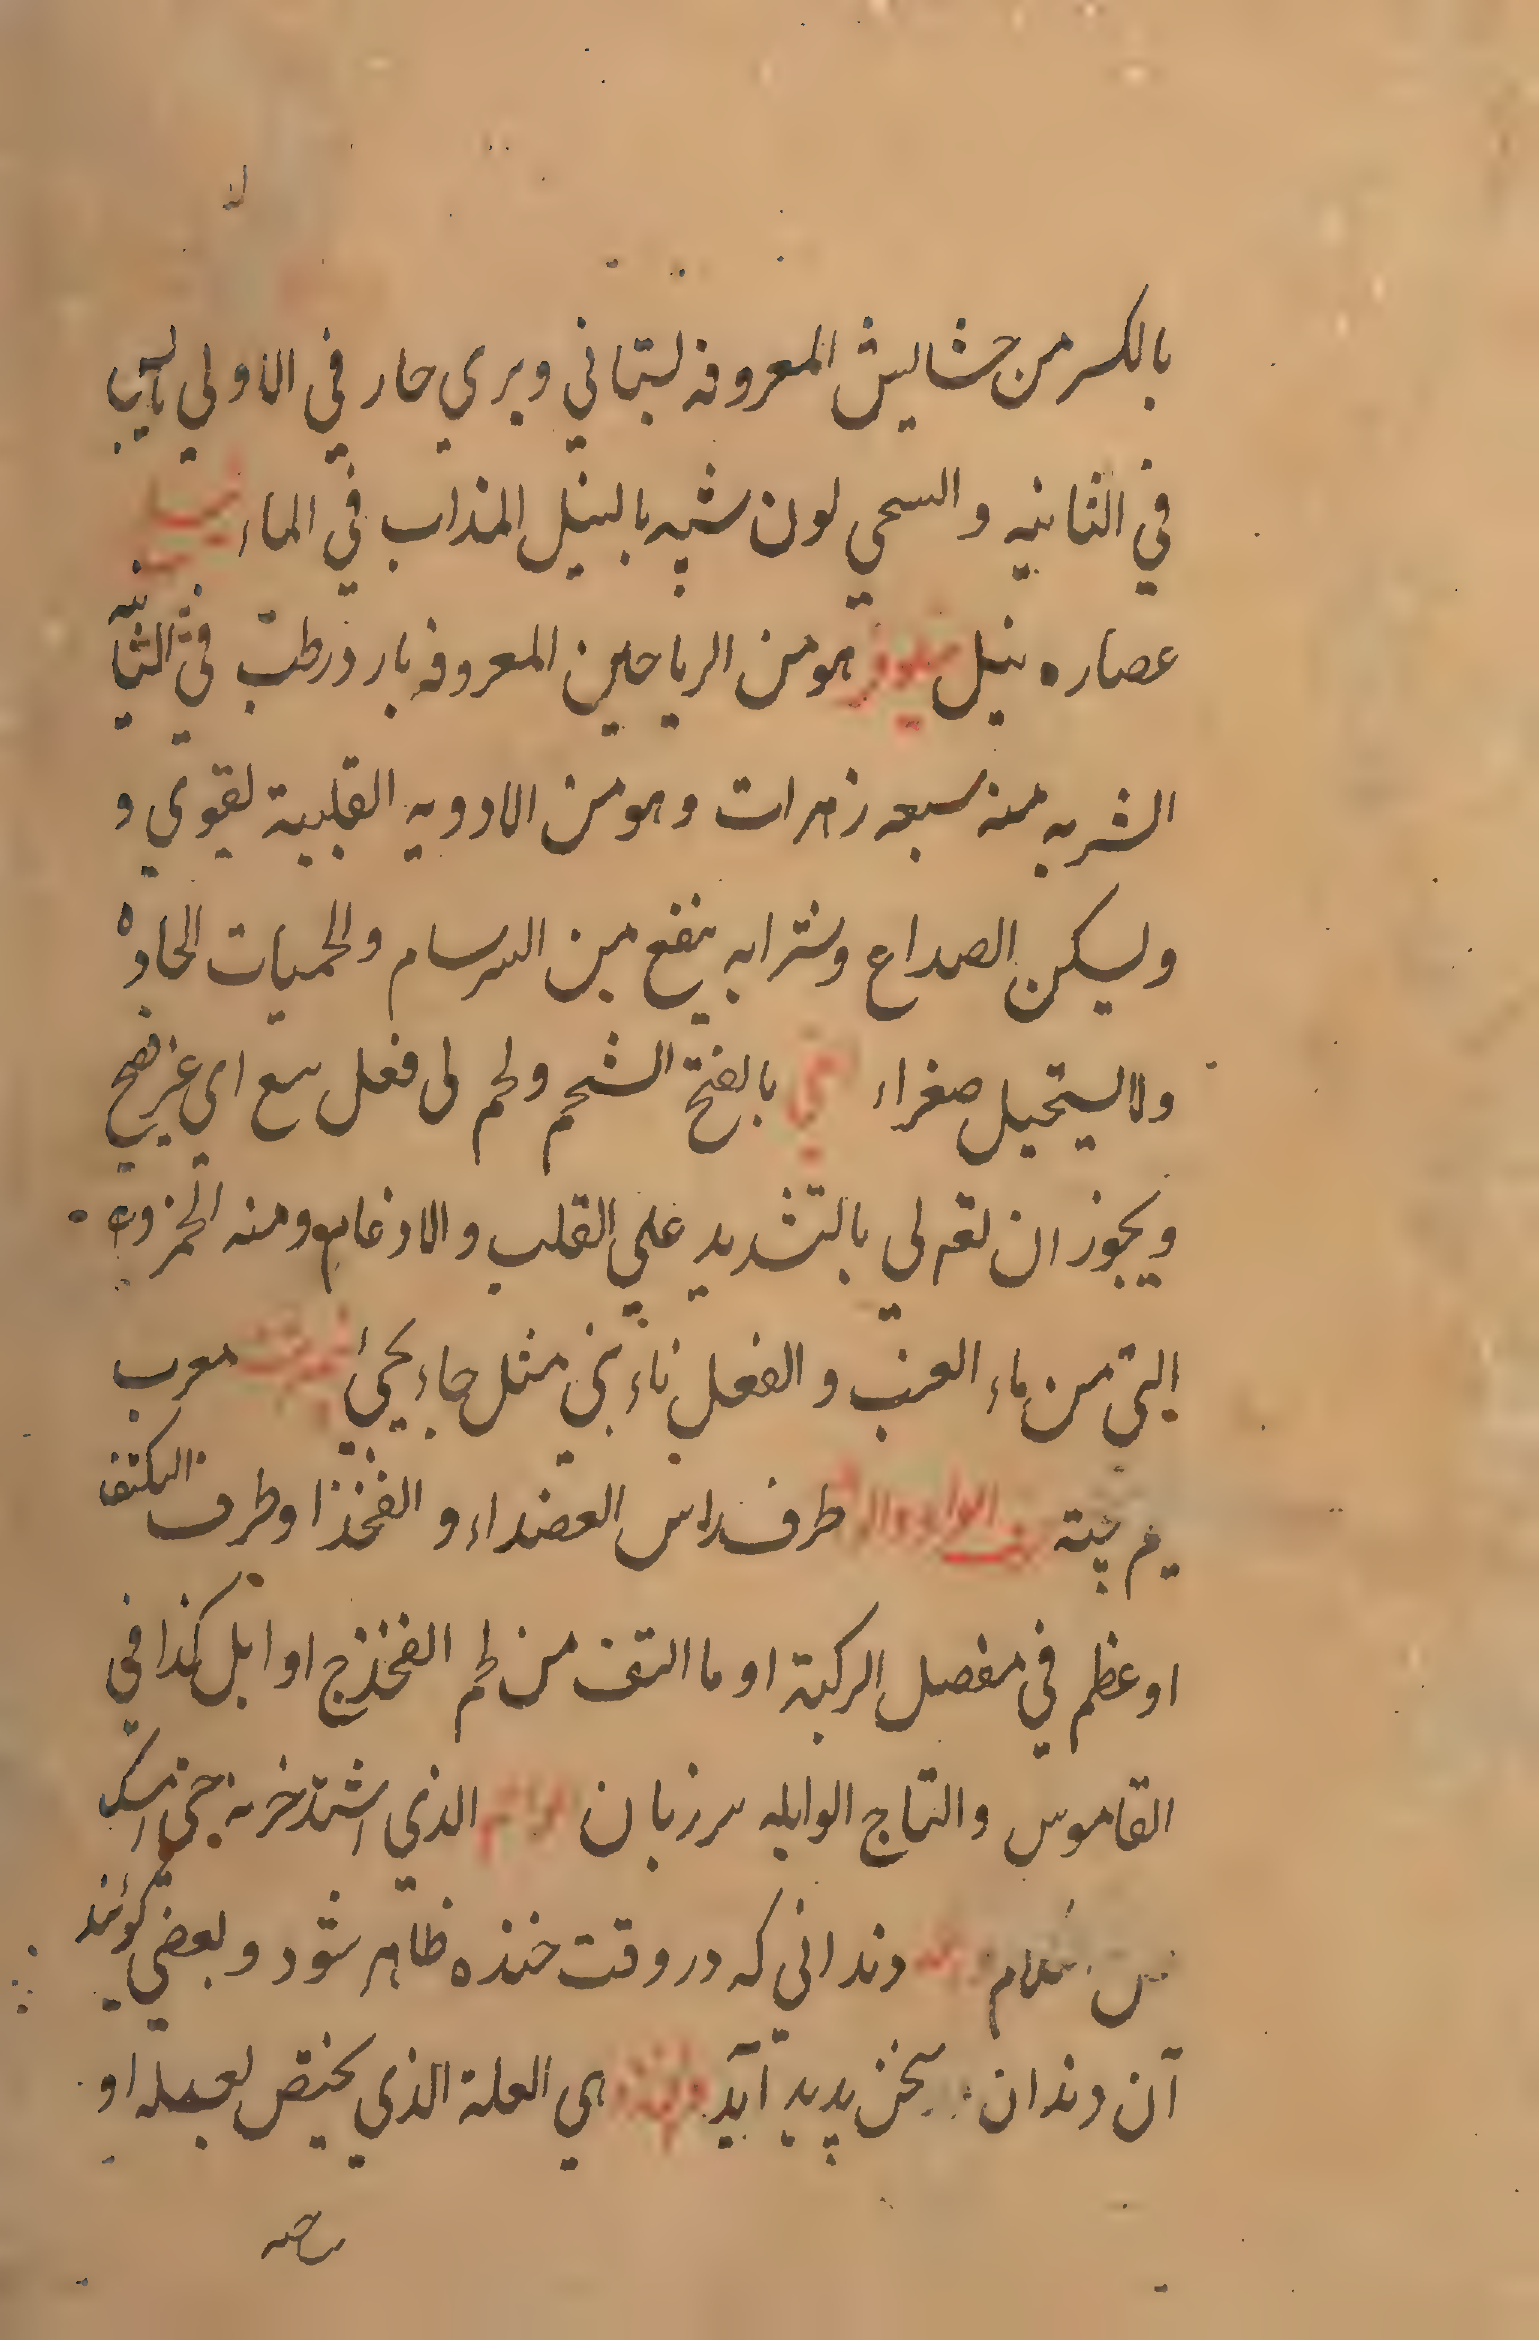 بالكسر من حشايش المعروفه بستاني وبري حار في الاولي يابس
في الثانيه والسحي لون شبيه بالنيل المذاب في الماء
عصاره نيل هو من الرياحين المعروفه بارد رطب في الثانيه
الشربه منه سبعه زهرات وهو من الادويه القلبية يقوي و
ويسكن الصداع وشرابه ينفع من السرسام والحميات الحاده
ولا يستحيل صفراء بالفتح الشحم ولحم ني فعل اي غير نضج
ويجوز ان ني بالتشديد علي القلب والادغام ومنه الخمر وي
التي من ماء العنب والفعل ناء ينئ مثل جاء يجئ معرب
نيم پخته الوابلة طرف راس العضداء والفخذ او طرف الكتف
او عظم في مفصل الركبة او ما التف من لحم الفخذ ج اوابل كذا في
القاموس والتاج الوابله سر زبان الذي اشتد حزنه حتي امسك
عن الكلام دنداني كه در وقت خنده ظاهر شود و بعضي گويند
آن دندان سخن پديد آيد هي العلة الذي يختص او